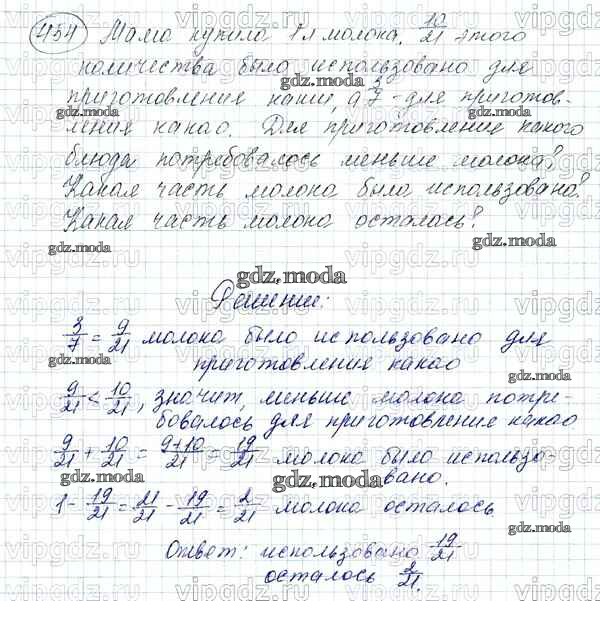 454 Мама купила 1 л молока. 10/21 этого
количества было использовано для
приготовления каши, а 3/7 - для приготов-
ления какао. Для приготовление какого
блюда потребовалось меньше молока?
Какая часть молока была использована?
Какая часть молока осталась?
gdz.moda
Решение:
3/7 = 9/21 молока было использовано для
приготовления какао
9/21 < 10/21, значит, меньше молока потре-
бовалось для приготовление какао
9/21 + 10/21 = 9+10/21 = 19/21 молока было использо-
вано.
1 - 19/21 = 21/21 - 19/21 = 2/21 молока осталось.
Ответ: использовано 19/21
осталось 2/21.